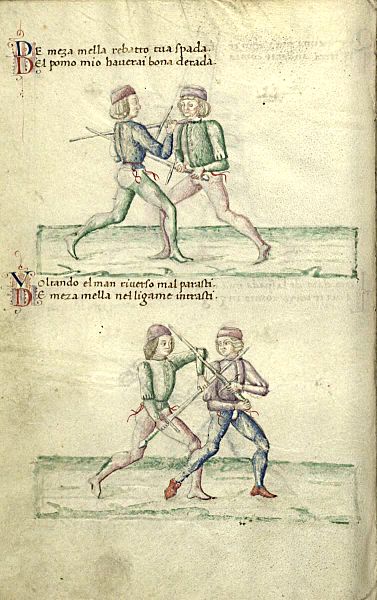 De meza mella rebatto tua spada.
Del pomo mio haverai bona derada.
Voltando el man riverso mal parasti.
De meza mella nel ligame intrasti.